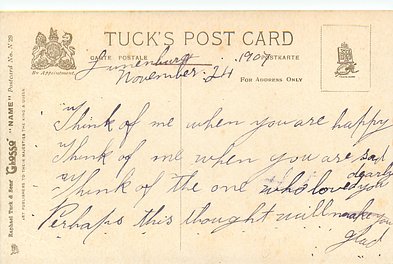 TUCK'S POST CARD
CARTE POSTALE
POSTKARTE
By Appointment.
FOR ADDRESS ONLY
Lunenburg
1907
November. 24
"Think of me when you are happy
"Think of me when you are sad
"Think of the one who loved you
dearly
Perhaps this thought will make you
glad
Raphael Tuck & Sons' "GLOSSO" "NAME" Postcard No. N 29
ART PUBLISHERS TO THEIR MAJESTIES THE KING & QUEEN.